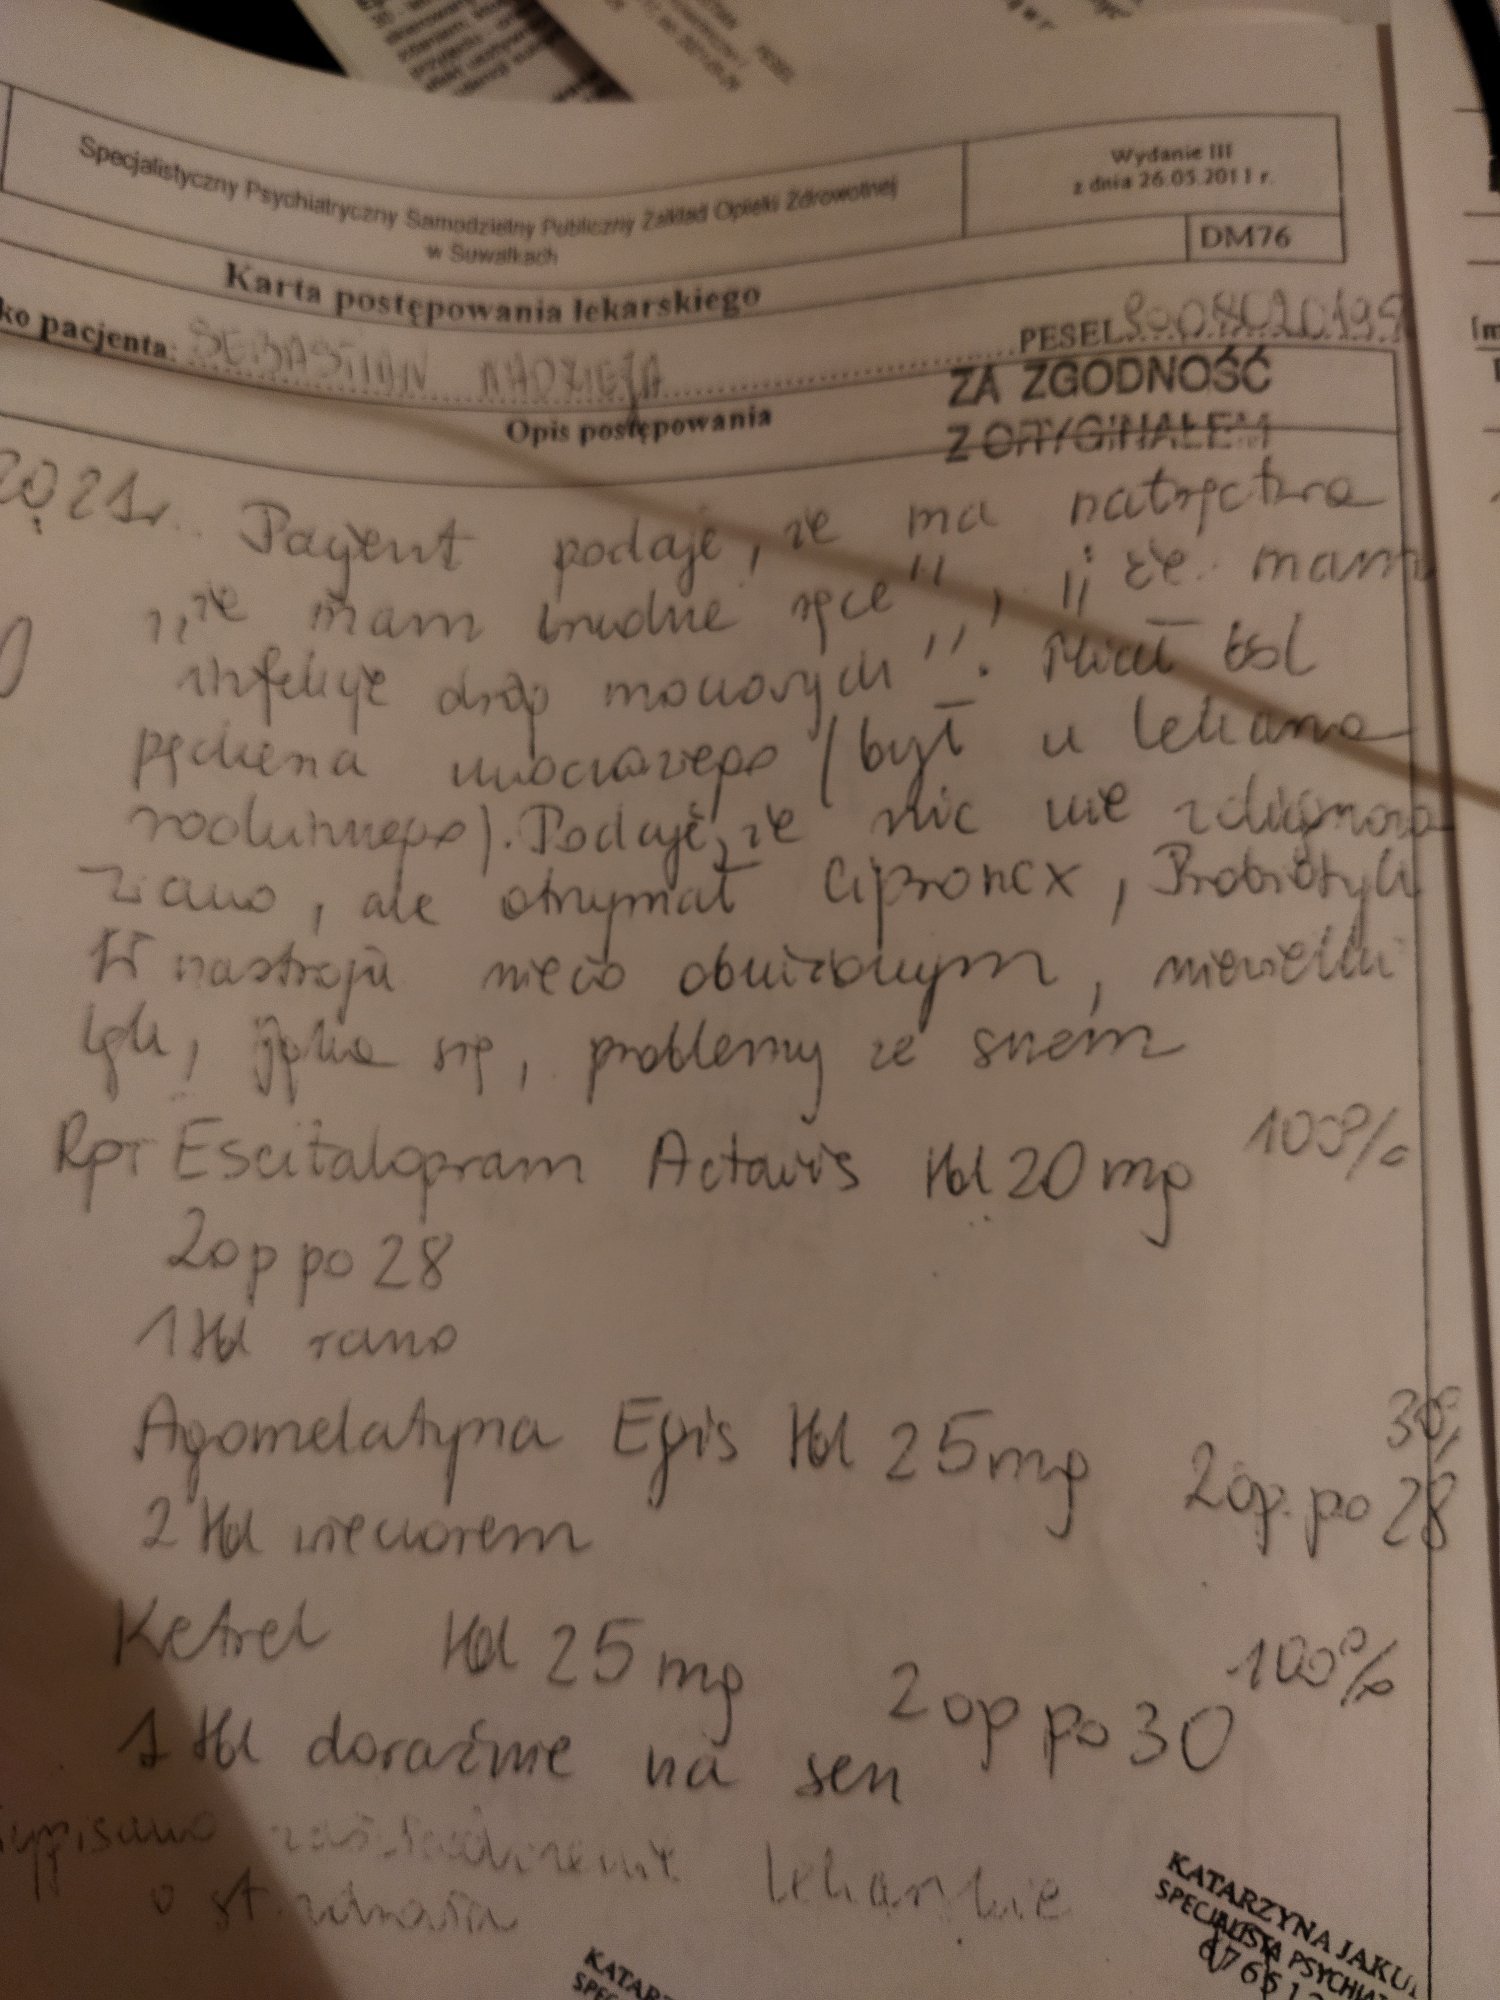 Specjalistyczny Psychiatryczny Samodzielny Publiczny Zakład Opieki Zdrowotnej
w Suwałkach
Wydanie III
z dnia 26.05.2011 r.
DM76
Karta postępowania lekarskiego
ko pacjenta: SEBASTIAN NADZIEJA PESEL
ZA ZGODNOŚĆ
Z ORYGINAŁEM
Opis postępowania
2021r. Pacjent podaje, że ma natręctwa
"że mam brudne ręce", "że mam
infekcje dróg moczowych". Miał ból
pęcherza moczowego (był u lekarza
rodzinnego). Podaje, że nic nie zdiagno
zowano, ale otrzymał Cipronex, Probiotyk
W nastroju nieco obniżonym, niewielki
lęk, jąka się, problemy ze snem
Rp: Escitalopram Actavis tbl 20 mg 100%
2op po 28
1 tbl rano
Agomelatyna Egis tbl 25 mg 2op. po 28 30%
2 tbl wieczorem
Ketrel tbl 25 mg 2 op po 30 100%
1 tbl doraźnie na sen
wypisano zaświadczenie lekarskie
o st. zdrowia
KATARZYNA JAKU
SPECJALISTA PSYCHIAT
KATAR
SPEC